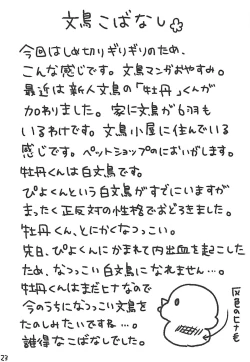 文鳥こばなし
今回はしめ切りぎりぎりのため、
こんな感じです。文鳥マンガおやすみ。
最近は新人文鳥の「牡丹」くんが
加わりました。家に文鳥が6羽も
いるわけです。文鳥小屋に住んでいる
感じです。ペットショップのにおいがします。
牡丹くんは白文鳥です。
ぴよくんという白文鳥がすでにいますが
まったく正反対の性格でおどろきました。
牡丹くん、とにかくなつっこい。
先日、ぴよくんにかまれて内出血を起こした
ため、なつっこい白文鳥になれません…。
牡丹くんはまだヒナなので
今のうちになつっこい文鳥を
たのしみたいですね…。
誰得なこばなしでした。
灰色のヒナ毛
27